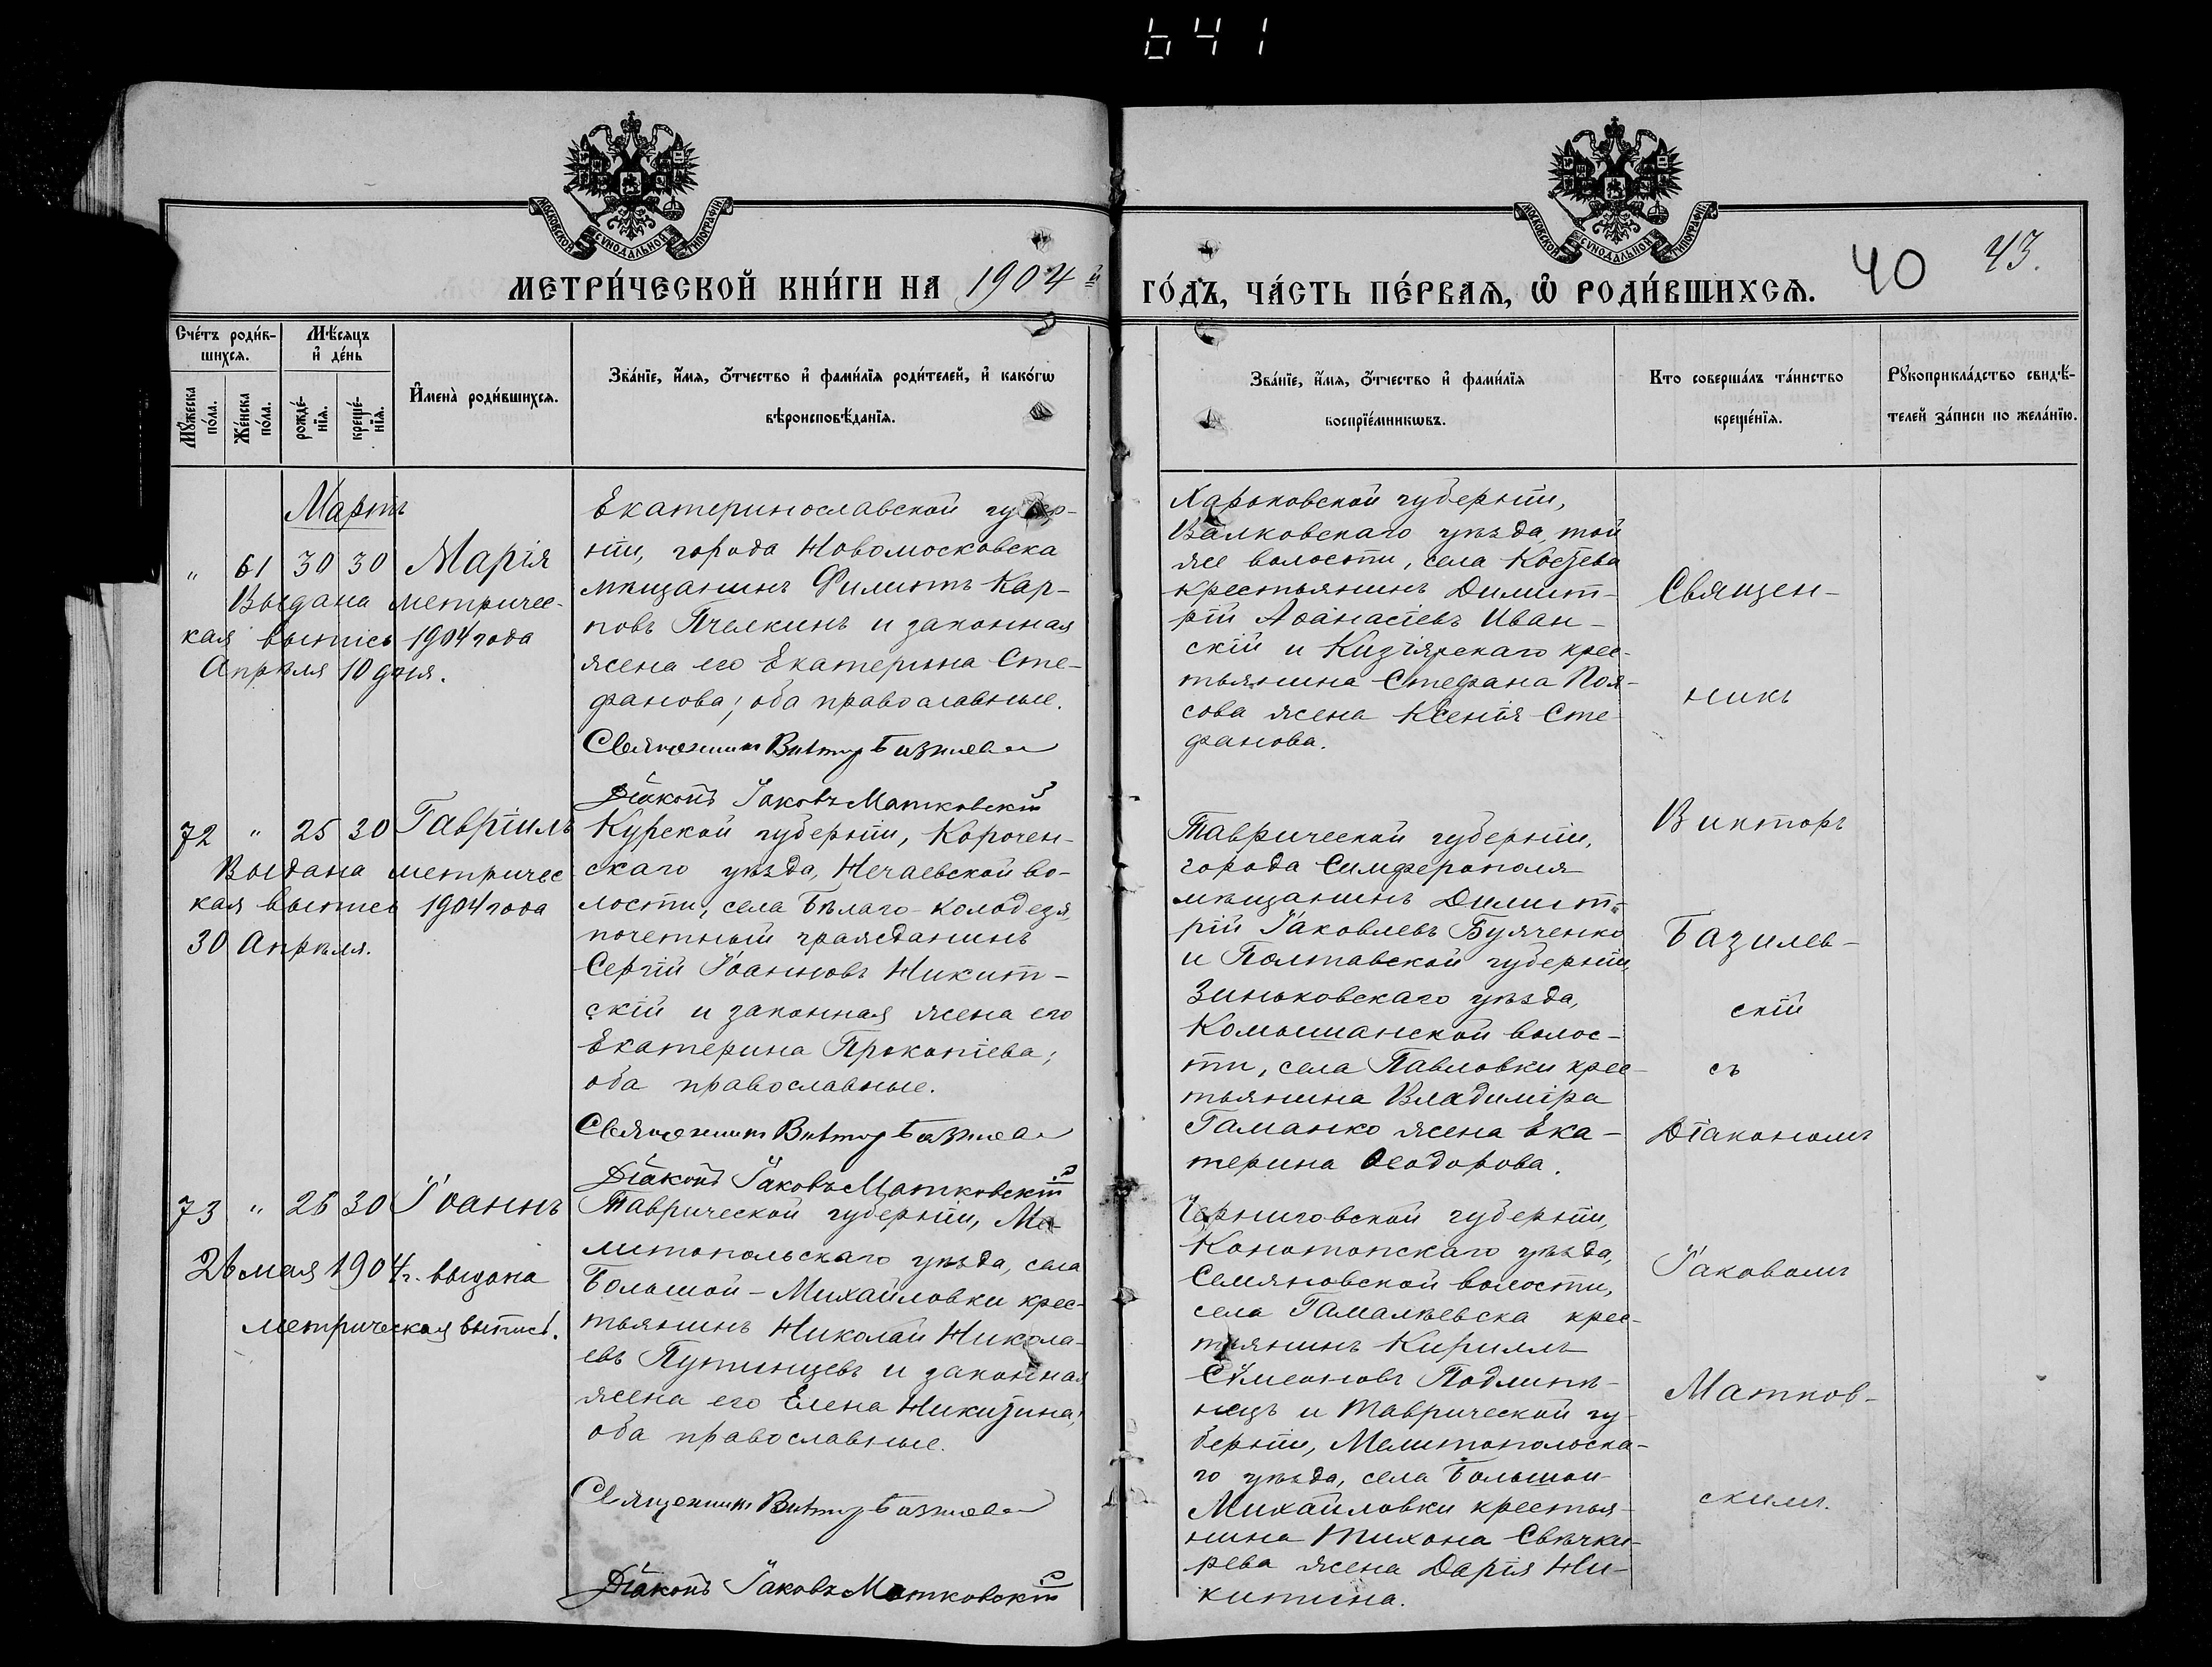 641
МОСКОВСКОЙ СУНОДАЛЬНОЙ ТИПОГРАФІИ
МОСКОВСКОЙ СУНОДАЛЬНОЙ ТИПОГРАФІИ
МЕТРИ́ЧЕСКОЙ КНИ́ГИ НА 1904й
ГО́ДЪ, ЧА́СТЬ ПЕ́РВАѦ, Ѡ РОДИ́ВШИХСѦ.
40 43.
Сче́тъ роди́в-
шихсѧ.
Мѣ́сѧцъ
и҆ де́нь
Мꙋжеска
по́ла.
Же́нска
по́ла.
рожде́-
нїѧ.
креще́-
нїѧ.
И҆мена̀ роди́вшихсѧ.
Зва́нїе, и҆́мѧ, ѻ҆́тчество и҆ фами́лїѧ роди́телей, и҆ како́гѡ
вѣроисповѣ́данїѧ.
Зва́нїе, и҆́мѧ, ѻ҆́тчество и҆ фами́лїѧ
воспрїе́мникѡвъ.
Кто соверша́лъ та́инство
креще́нїѧ.
Рꙋкоприкла́дство свидѣ́-
телей за́писи по жела́нїю.
Мартъ
" 61 30 30 Марія
Выдана метричес-
кая выпись 1904 года
Апрѣля 10 дня.
Екатеринославской губер-
ніи, города Новомосковска
мѣщанинъ Филиппъ Кар-
повъ Пчелкинъ и законная
жена его Екатерина Сте-
фанова; оба православные.
Священникъ Викторъ Базилев
Діаконъ Іаковъ Матковскій
Харьковской губерніи,
Валковскаго уѣзда, той
же волости, села Костева
крестьянинъ Димит-
рій Аѳанасіевъ Иван-
скій и Кизіярскаго крес-
тьянина Стефана Поя-
сова жена Ксенія Сте-
фанова.
72 " 25 30 Гавріилъ
Выдана метричес
кая выпись 1904 года
30 Апрѣля.
Курской губерніи, Корочен-
скаго уѣзда, Нечаевской во-
лости, села Бѣлаго-колодезя,
почетный гражданинъ
Сергій Іоанновъ Никит-
скій и законная жена его
Екатерина Прокопіева;
оба православные.
Священникъ Викторъ Базилев
Діаконъ Іаковъ Матковскій
Таврической губерніи,
города Симферополя
мѣщанинъ Димит-
рій Іаковлевъ Бутченко
и Полтавской губерніи,
Зиньковскаго уѣзда,
Комышанской волос-
ти, села Павловки крес-
тьянина Владиміра
Гаманко жена Ека-
терина Ѳеодорова.
73 " 26 30 Іоаннъ
26 мая 1904 г. выдана
метрическая выпись.
Таврической губерніи, Ме-
литопольскаго уѣзда, села
Большой-Михайловки крес-
тьянинъ Николай Никола-
евъ Путинцевъ и законная
жена его Елена Никитина;
оба православные.
Священникъ Викторъ Базилев
Діаконъ Іаковъ Матковскій
Черниговской губерніи,
Конотопскаго уѣзда,
Семяновской волости,
села Гамалѣевска крес-
тьянинъ Кириллъ
Симеоновъ Подлипъ-
нецъ и Таврической гу-
берніи, Мелитопольска-
го уѣзда, села Большой
Михайловки крестья-
нина Тихона Свѣчка-
рева жена Дарія Ни-
китина.
Священ-
никъ
Викторъ
Базилев-
скій
съ
Діакономъ
Іаковомъ
Матков-
скимъ.